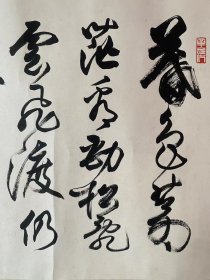 暮色蒼
茫看勁松亂
雲飛渡仍